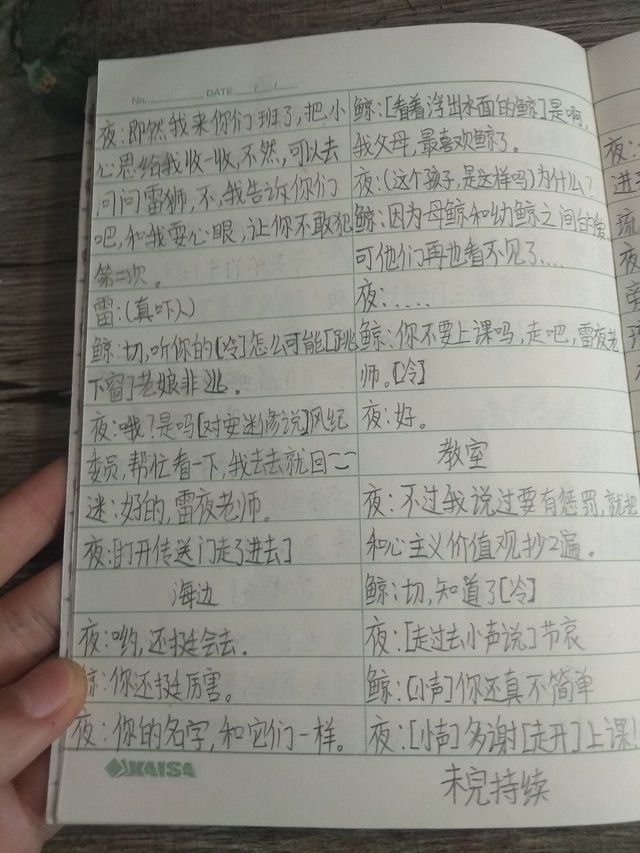 No.
DATE / /
夜:即然我来你们班了,把小
心思给我收一收,不然,可以去
问问雷狮,不,我告诉你们
吧,和我耍心眼,让你不敢犯
第二次。
雷:(真吓人)
鲸:切,听你的[冷]怎么可能[跳
下窗]老娘非逃。
夜:哦?是吗[对安迷修说]风纪
委员,帮忙看一下,我去去就回
迷:好的,雷夜老师。
夜:[打开传送门走了进去]
海边
夜:哟,还挺会去.
鲸:你还挺厉害。
夜:你的名字,和它们一样。
KAISA
鲸:[看着浮出水面的鲸]是啊,
我父母,最喜欢鲸了。
夜:(这个孩子,是这样吗)为什么?
鲸:因为母鲸和幼鲸之间的
可他们再也看不见了....
夜:.....
鲸:你不要上课吗,走吧,雷夜老
师。[冷]
夜:好。
教室
夜:不过我说过要有惩罚,就把
和心主义价值观抄2遍。
鲸:切,知道了[冷]
夜:[走过去小声说]节哀
鲸:[小声]你还真不简单
夜:[小声]多谢[走开]上课!
未完持续
夜:
进
夜